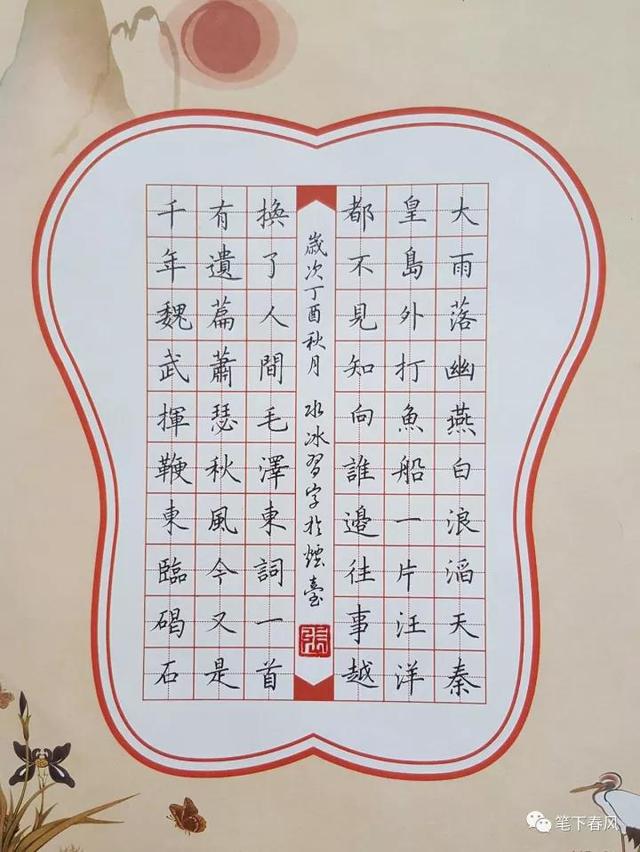 大雨落幽燕白浪滔天秦
皇島外打魚船一片汪洋
都不見知向誰邊往事越
千年魏武揮鞭東臨碣石
有遺篇蕭瑟秋風今又是
換了人間毛澤東詞一首
歲次丁酉秋月 水冰習字於煙臺
張
笔下春风